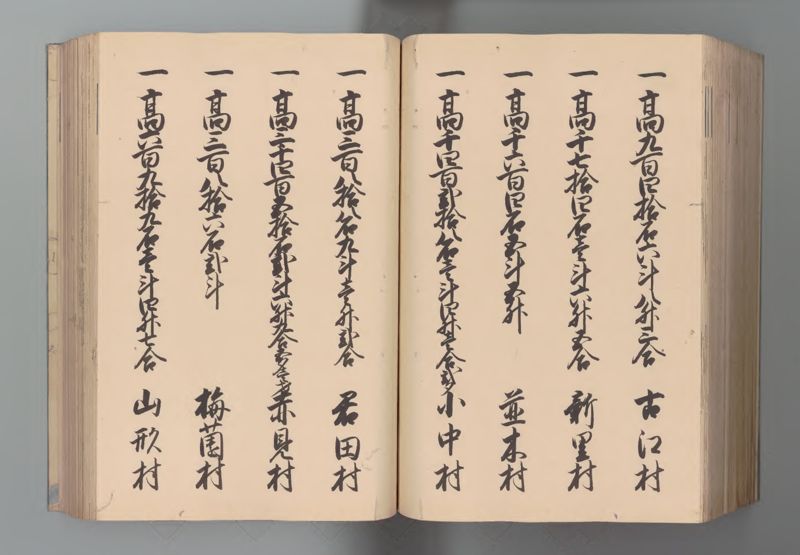 一高九百四拾石六斗八升三合 古江村
一高千七拾四石壱斗六升五合 新里村
一高千六百四石五斗五升 並木村
一高千四百弐拾八石壱斗四升壱合弐夕 小中村
一高三百八拾八石九斗壱升弐合 君田村
一高三千四百五拾石弐斗六升九合五夕 赤見村
一高三百八拾六石弐斗 梅薗村
一高六百九拾九石壱斗四升七合 山形村